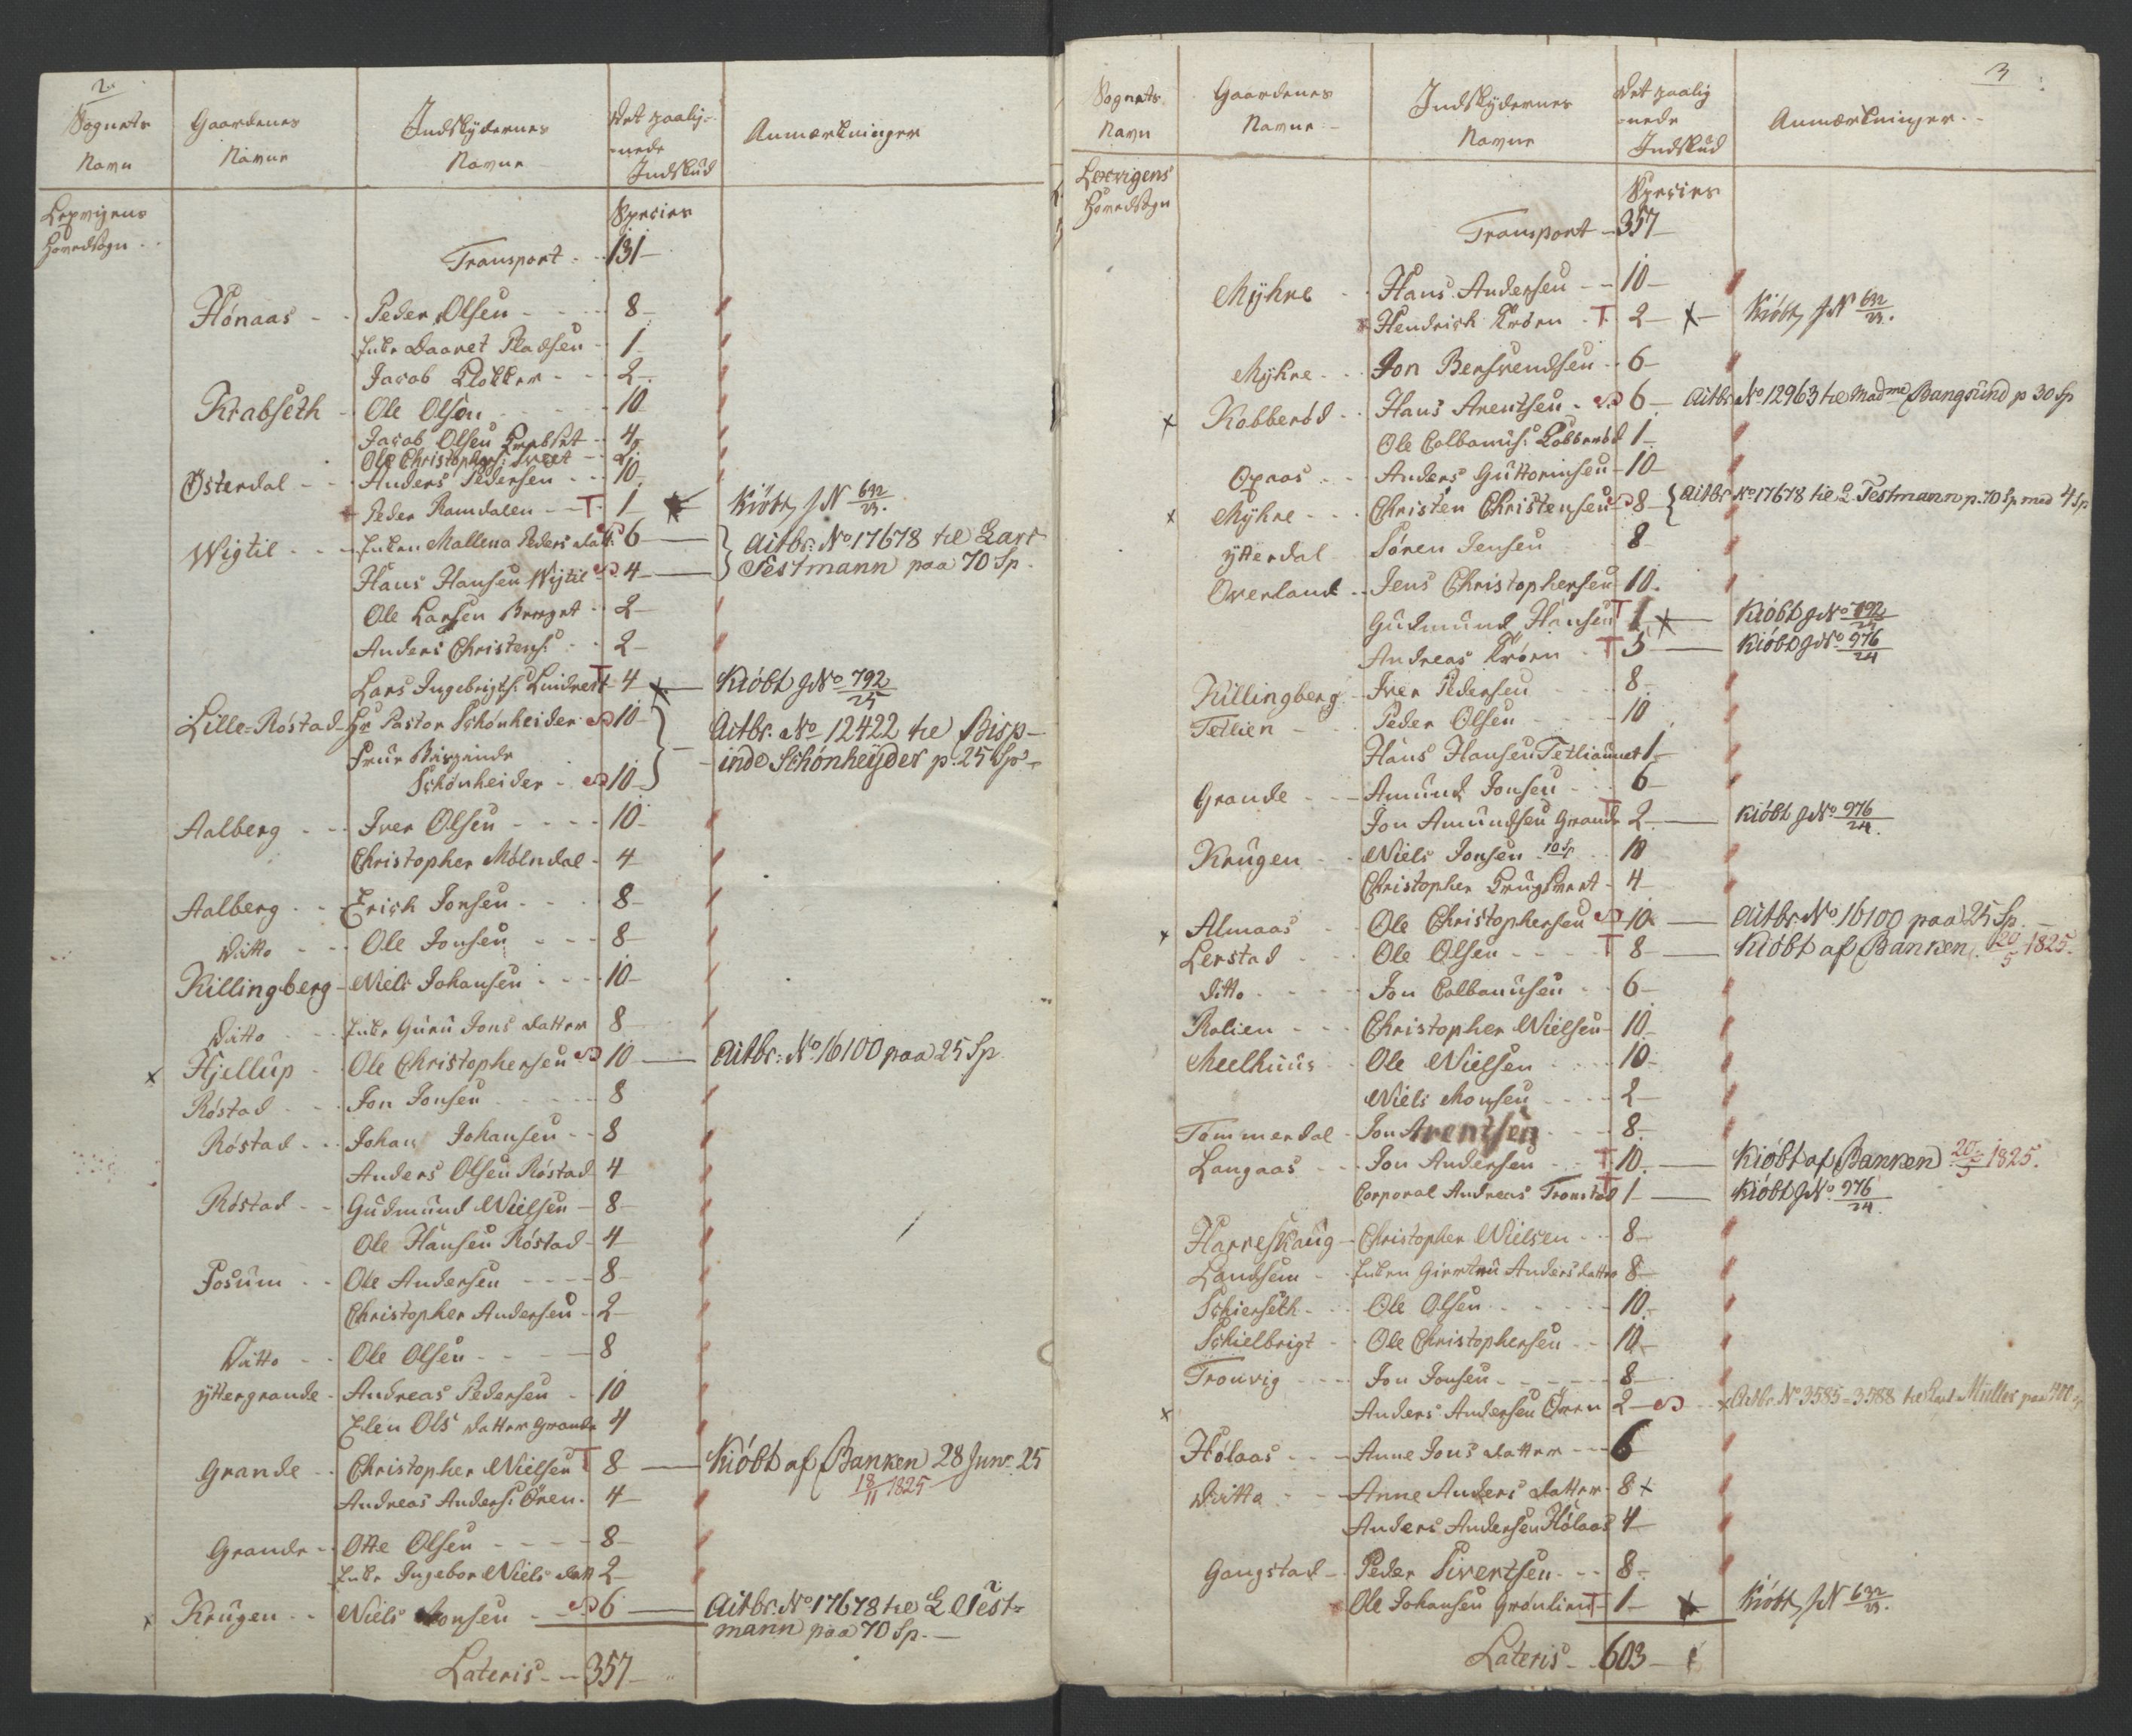 2.
Sognets Navn
Gaardenes Navne
Indskydernes Navne
Det paalig-nede Indskud
Anmærkninger
Lexvigens Hovedsogn
Species
Transport 131
Hónaas Peder Olsen 8
Enke Daaret Pladsen 1
Jacob Klokker 2
Krabseth Ole Olsen 10
Jacob Olsen Krabset 4
Ole Christophers: 2
Østerdal Anders Pedersen 10
Peder Ramdalen T 1 Kiöbt J N 632/23.
Wigtil Enken Mallena Peders datt: 6 Aitbr. No 17678 til Lars
Hans Hansen Wigtil 4 Testmann paa 70 Sp.
Ole Larsen Berget 2
Anders Christens: 2
Lars Ingebrigts: T 4 Kióbt J No 792/25
Lille-Róstad Hr Pastor Schönheider 10 Aitbr. No 12422 til Bisp-
Frue Bispinde inde Schónheyder p. 25 Sp
Schönheider 10
Aalberg Iver Olsen 10
Christopher Mólndal 4
Aalberg Erich Jonsen 8
Ditto Ole Jonsen 8
Killingberg Niels Johansen 10
Ditto Enke Guru Jons datter 8
x Hjellup Ole Christophersen 10 Aitbr: No 16100 paa 25 Sp
Róstad Jon Jonsen 8
Róstad Johan Johansen 8
Anders Olsen Róstad 4
Róstad Gudmund Nielsen 8
Ole Hansen Róstad 4
Fosum Ole Andersen 8
Christopher Andersen 2
Ditto Ole Olsen 8
Yttergrande Andreas Pedersen 10
Elen Ols datter Grande 4
Grande Christopher Nielsen T 8 Kióbt af Banken 28 Junr. 25
18/11 1825
Andreas Anders: Ören 4
Grande Otte Olsen 8
Enke Ingebor Niels datt 2
x Krugen Niels Monsen 6 Aitbr. No 17678 til L Test-
mann paa 70 Sp.
Lateris 357
3
Sognets Navn
Gaardenes Navne
Indskydernes Navne
Det paalig-nede Indskud
Anmærkninger
Lexvigens Hovedsogn
Species
Transport 357
Myhre Hans Andersen 10
Hendrich Krörn T 2 Kiöbt J N 632/23.
Myhre Jon Bersvendsen 6
x Kobberód Hans Arentsen 6 Aitbr No 12963 til Madme Bangsund p 30 Sp
Ole Colbanus: Kobberód 1
Oxaas Anders Guttormsen 10
x Myhre Christen Christensen 8 Aitbr No 17678 til L. Testmann p. 70 Sp med 4 Sp
Ytterdal Sören Jensen 8
Overland Jens Christophersen 10
Gudmund Hansen T 1 Kióbt J No 792/25
Andreas Krörn T 5 Kióbt J No 976/24
Killingberg Iver Pedersen 8
Tetlien Peder Olsen 10
Hans Hansen Tetliaunet 1
Grande Amund Jonsen 6
Jon Amundsen Grande T 2 Kióbt J No 976/24.
Krugen Niels Jonsen 10 Sp 10
Christopher 4
x Almaas Ole Christophersen 10 Aitbr No 16100 paa 25 Sp.
Lerstad Ole Olsen T 8 Kióbt af Banken 20/5 1825.
Ditto Jon Colbanusen 6
Rolien Christopher Nielsen 10
Meelhuus Ole Nielsen 10
Niels Monsen 2
Tømmerdal Jon Arentsen 8
Langaas Jon Andersen T 10 Kióbt af Banken 20/5 1825.
Corporal Andreas Tronstad T 1 Kióbt J No 976/24.
Harreskaug Christopher Nielsen 8
Landsem Enken Giertru Anders datter 8
Schierseth Ole Olsen 10
Schielbrigt Ole Christophersen 10
Tronvig Jon Jonsen 8
x Anders Andersen Ören 2 Aitbr No 3585-3588 til Müller paa 400 Sp
Hólaas Anne Jons datter 6
Ditto Anne Anders datter 8
Anders Andersen Hólaas 4
Gangstad Peder Sivertsen 8
Ole Johansen Grónlien T 1 Kiöbt J N 632/23.
Lateris 603